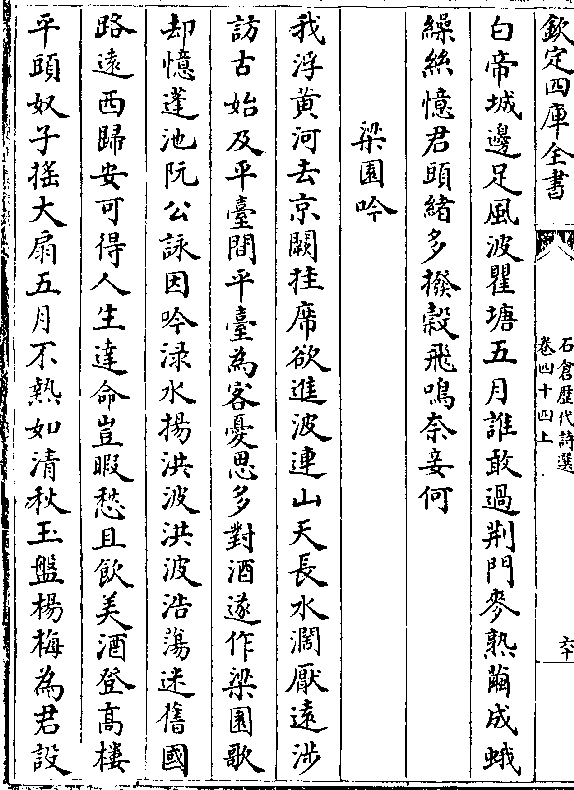 欽定四庫全書
石倉歴代詩選
卷四十四上
六十
白帝城邊足風波瞿塘五月誰敢過荆門麥熟繭成蛾
繰絲憶君頭緒多撥穀飛鳴奈妾何
梁園吟
我浮黄河去京闕挂席欲進波連山天長水濶厭遠涉
訪古始及平臺間平臺為客憂思多對酒遂作梁園歌
却憶蓬池阮公詠因吟渌水揚洪波洪波浩蕩迷舊國
路遠西歸安可得人生達命豈暇愁且飲美酒登髙樓
平頭奴子揺大扇五月不熱如清秋玉盤楊梅為君設